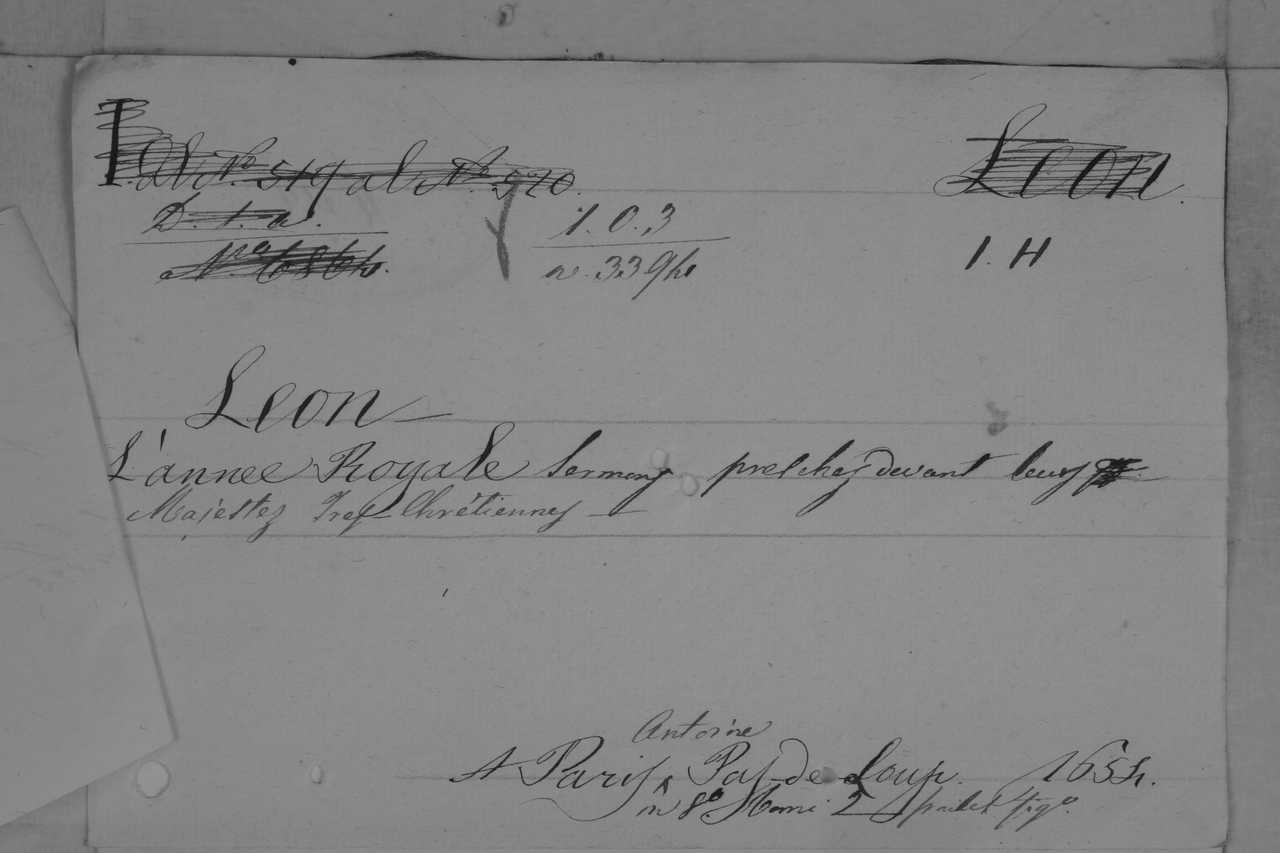 al No. 519 al No. 520. Leon.
D. t. a. 1. 0. 3
1. H
Leon
L'annee Royale Sermons preschez devant leurs
Majestez Tres Chrétiennes
Antoine
A Paris Pas-de Loup. 1655.
in 8º tomi 2